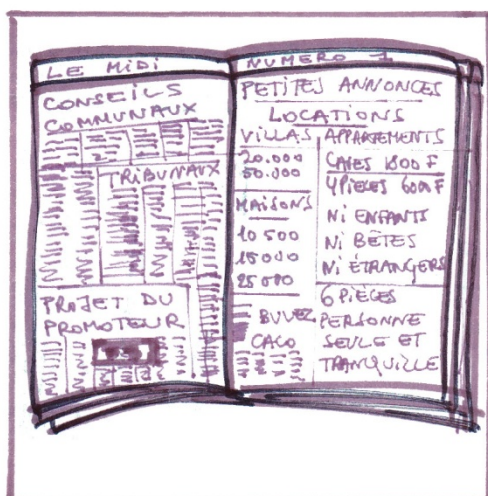 LE MIDI
CONSEILS
COMMUNAUX
TRIBUNAUX
PROJET DU
PROMOTEUR
NUMERO 1
PETITES ANNONCES
LOCATIONS
VILLAS
20.000
50.000
MAISONS
10 500
15000
25000
BUVEZ
CACO
APPARTEMENTS
CAVES 1800 F
4 PIECES 6000 F
NI ENFANTS
NI BÊTES
NI ÉTRANGERS
6 PIÈCES
PERSONNE
SEULE ET
TRANQUILLE